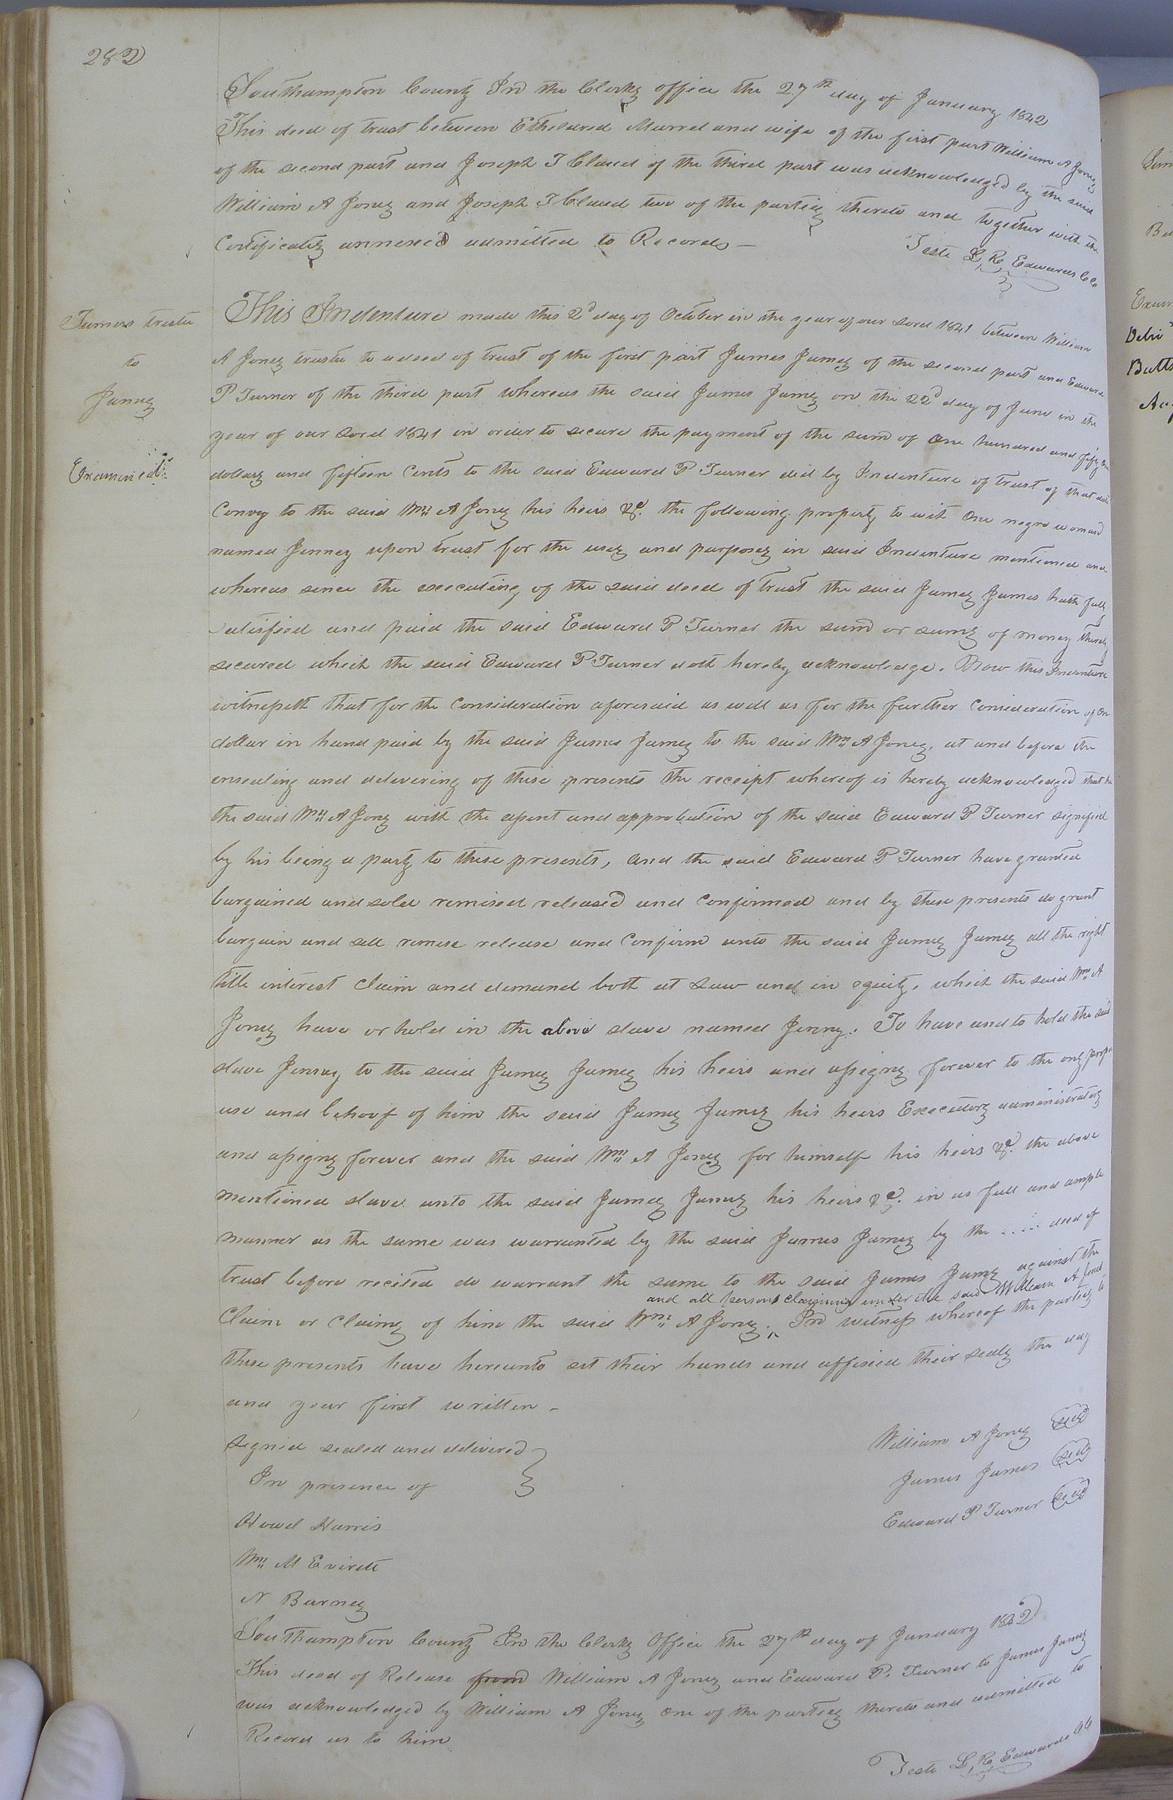 282
Southampton County In the Clerks office the 27th day of January 1842
This deed of trust between Etheldred Murrel and wife of the first part William A Jones
of the second part and Joseph T Claud of the third part was acknowledged by the said
William A Jones and Joseph T Claud two of the parties thereto and together with the
Certificates annexed admitted to Record —
Teste L. R. Edwards Clo
Turners trustee
to
James
Examined
This Indenture made this 2d day of October in the year of our Lord 1841 between William
A Jones trustee to a deed of trust of the first part James James of the second part and Edward
P Turner of the third part whereas the said James James on the 22d day of June in the
year of our Lord 1841 in order to secure the payment of the sum of One hundred and fifty
dollars and fifteen Cents to the said Edward P Turner did by Indenture of trust of that date
Convey to the said Wm A Jones his heirs &c. the following property to wit One negro woman
named Jenney upon trust for the uses and purposes in said Indenture mentioned and
whereas since the executing of the said deed of trust the said James James hath fully
satisfied and paid the said Edward P Turner the sum or sums of money thereby
secured which the said Edward P. Turner doth hereby acknowledge. Now this Indenture
witnesseth that for the Consideration aforesaid as well as for the further Consideration of One
dollar in hand paid by the said James James to the said Wm A Jones. at and before the
ensealing and delivering of these presents the receipt whereof is hereby acknowledged that he
the said Wm A Jones with the assent and approbation of the said Edward P Turner signified
by his being a party to these presents, and the said Edward P Turner have granted
bargained and sold remised released and Confirmed and by these presents do grant
bargain and sell remise release and Confirm unto the said James James all the right
title interest claim and demand both at Law and in equity. which the said Wm A
Jones have or hold in the above slave named Jenny. To have and to hold the said
slave Jenney to the said James James his heirs and assigns forever to the only proper
use and behoof of him the said James James his heirs Executors administrators
and assigns forever and the said Wm A Jones for himself his heirs &c. the above
mentioned slave unto the said James James his heirs &c. in as full and ample
manner as the same was warranted by the said James James by the .... deed of
trust before recited do warrant the same to the said James James against the
and all persons claiming under the said William A Jones
Claim or Claims of him the said Wm A Jones. In witness whereof the parties to
these presents have hereunto set their hands and affixed their seals the day
and year first written -
Signed sealed and delivered }
In presence of
Howel Harris
Wm M Everett
N Barnes
William A Jones Seal
James James Seal
Edward P Turner Seal
Southampton County In the Clerks Office the 27th day of January 1842
This deed of Release from William A Jones and Edward P. Turner to James James
was acknowledged by William A Jones one of the parties thereto and admitted to
Record as to him
Teste L. R. Edwards Clo